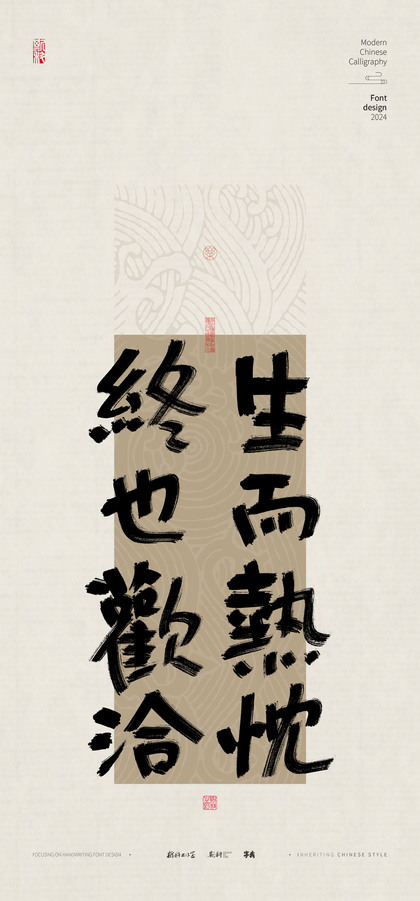 Modern
Chinese
Calligraphy
Font
design
2024
生而熱忱
終也歡洽
FOCUSING ON HANDWRITING FONT DESIGN
INHERITING CHINESE STYLE